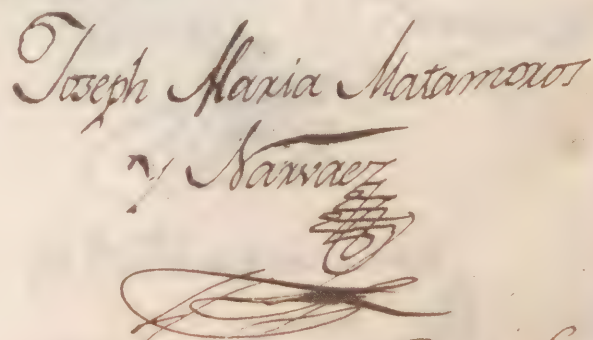 Joseph Maria Matamoros
y Narvaez